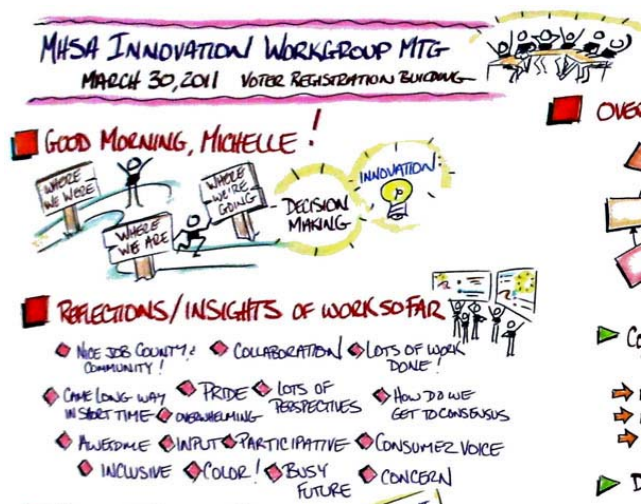 MHSA INNOVATION WORKGROUP MTG
MARCH 30, 2011 VOTER REGISTRATION BUILDING
GOOD MORNING, MICHELLE!
WHERE WE WERE
WHERE WE ARE
WHERE WE'RE GOING
DECISION MAKING
INNOVATION
REFLECTIONS/INSIGHTS OF WORK SO FAR
NICE JOB COUNTY & COMMUNITY!
COLLABORATION
LOTS OF WORK DONE!
CAME LONG WAY IN SHORT TIME
PRIDE
OVERWHELMING
LOTS OF PERSPECTIVES
HOW DO WE GET TO CONSENSUS
AWESOME
INPUT
PARTICIPATIVE
CONSUMER VOICE
INCLUSIVE
COLOR!
BUSY FUTURE
CONCERN
OVER